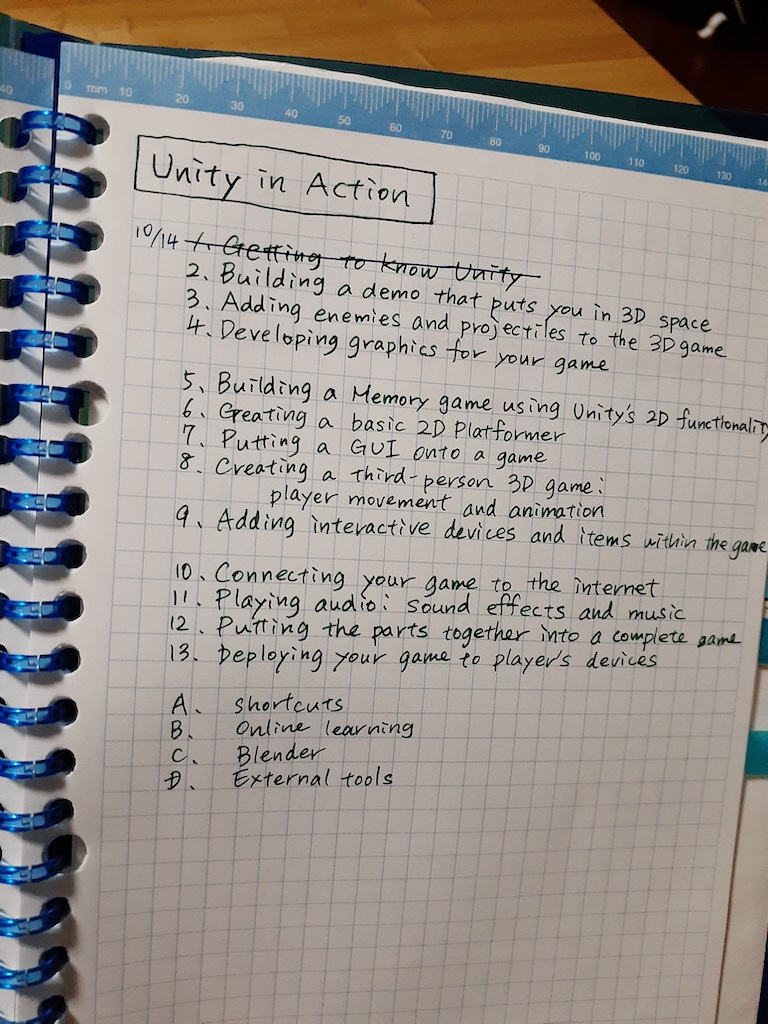 40 0 mm 10 20 30 40 50 60 70 80 90 100 110 120 130 14
Unity in Action
10/14 1. Getting to know Unity
2. Building a demo that puts you in 3D space
3. Adding enemies and projectiles to the 3D game
4. Developing graphics for your game
5. Building a Memory game using Unity's 2D functionality
6. Creating a basic 2D Platformer
7. Putting a GUI onto a game
8. Creating a third-person 3D game:
player movement and animation
9. Adding interactive devices and items within the game
10. Connecting your game to the internet
11. Playing audio: sound effects and music
12. Putting the parts together into a complete game
13. Deploying your game to player's devices
A. shortcuts
B. Online learning
C. Blender
D. External tools